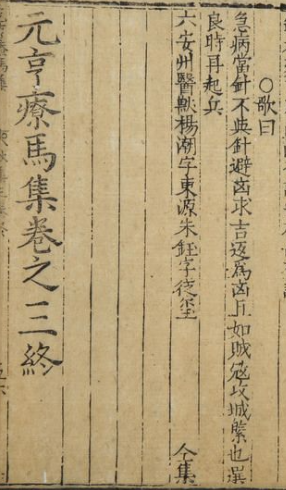 ○歌曰
急病當針不與針避凶求吉返爲凶正如賊寇攻城緊也選
良時再起兵
六安州醫獸楊潮字東源朱鈺字從璽　全集
元亨療馬集卷之三終